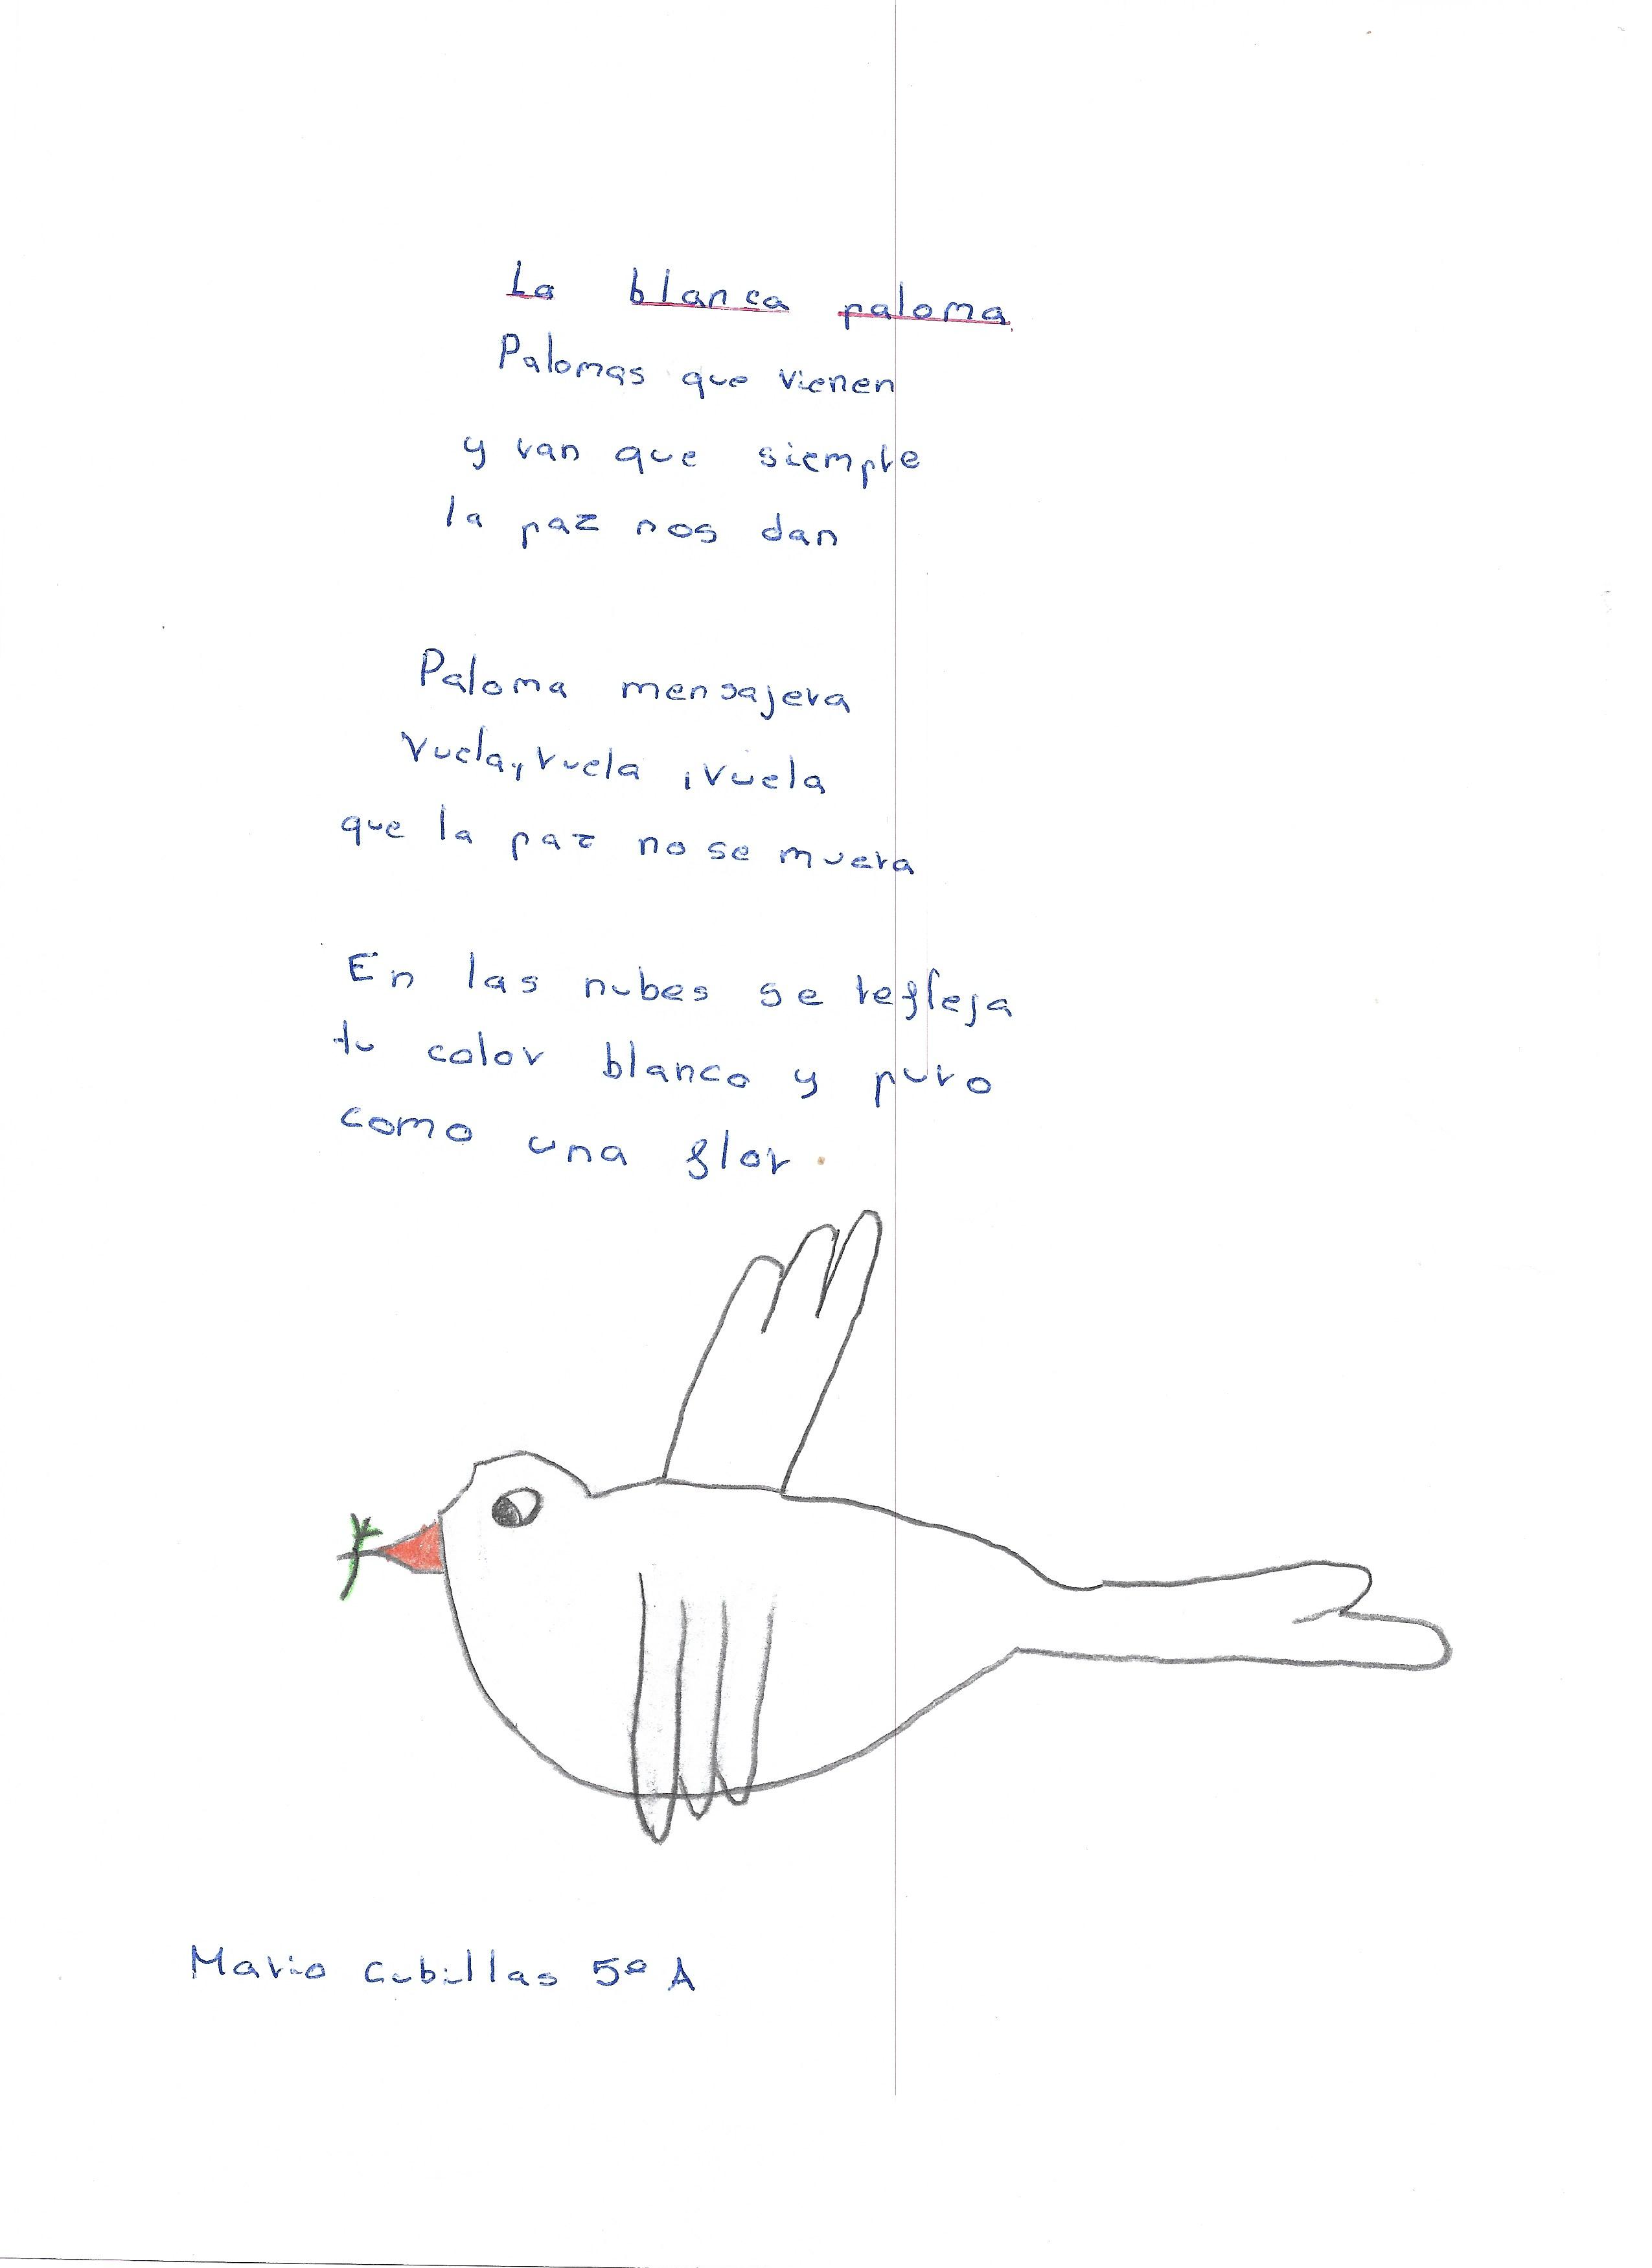 La blanca paloma
Palomas que vienen
y van que siempre
la paz nos dan
Paloma mensajera
Vuela, vuela ¡vuela
que la paz no se muera
En las nubes se refleja
tu color blanco y puro
como una flor.
Mario Cubillas 5º A